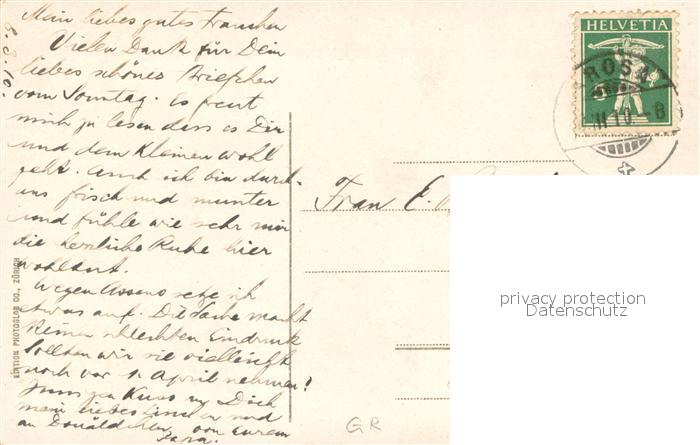 8. 3. 10.
Mein liebes gutes Frauchen
Vielen Dank für Dein
liebes schönes Briefchen
vom Sonntag. Es freut
mich zu lesen dass es Dir
und dem Kleinen wohl
geht. Auch ich bin durch-
aus frisch und munter
und fühle wie sehr mir
die herrliche Ruhe hier
wohltut.
Wegen Assens setze ich
etwas auf. Die Sache macht
keinen schlechten Eindruck
Sollten wir sie vielleicht
noch vor 1. April nehmen?
Kuss Dich
mein liebes und
an Donaldchen von Eurem
Papa.
EDITION PHOTOGLOB CO., ZÜRICH
HELVETIA
AROSA
III 10. – 8
Frau E.
privacy protection
Datenschutz
GR